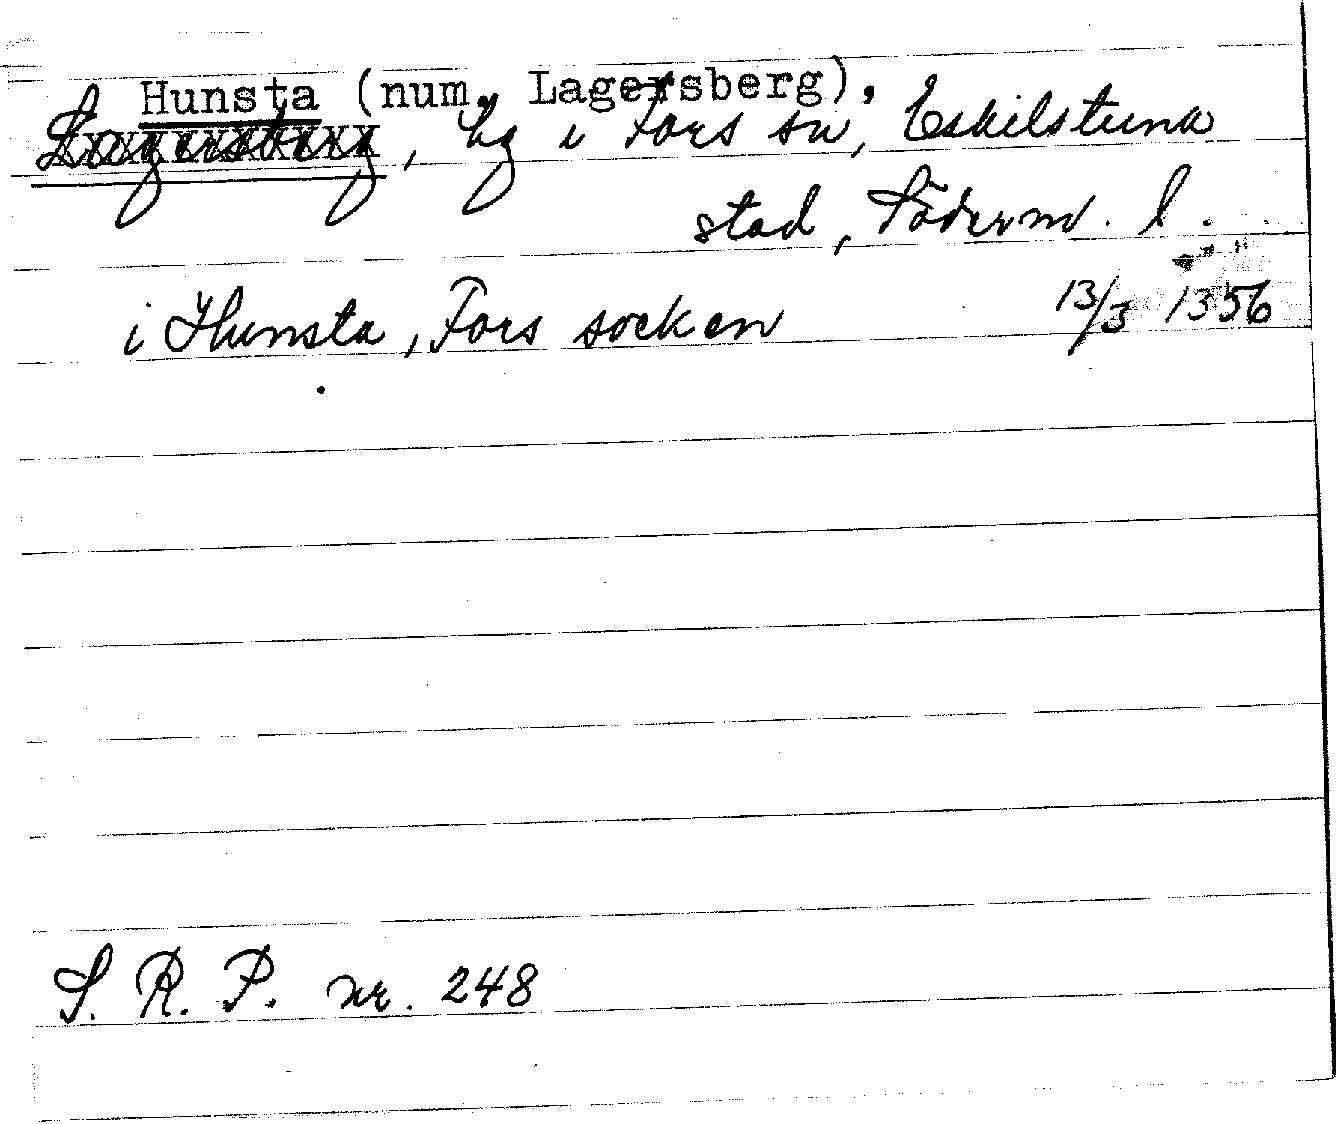 Hunsta (num. Lagersberg),
Lagersberg, hg i Fors sn, Eskilstuna
stad, Söderm. l.
i Hunsta, Fors socken 13/3 1356
S. R. P. nr. 248